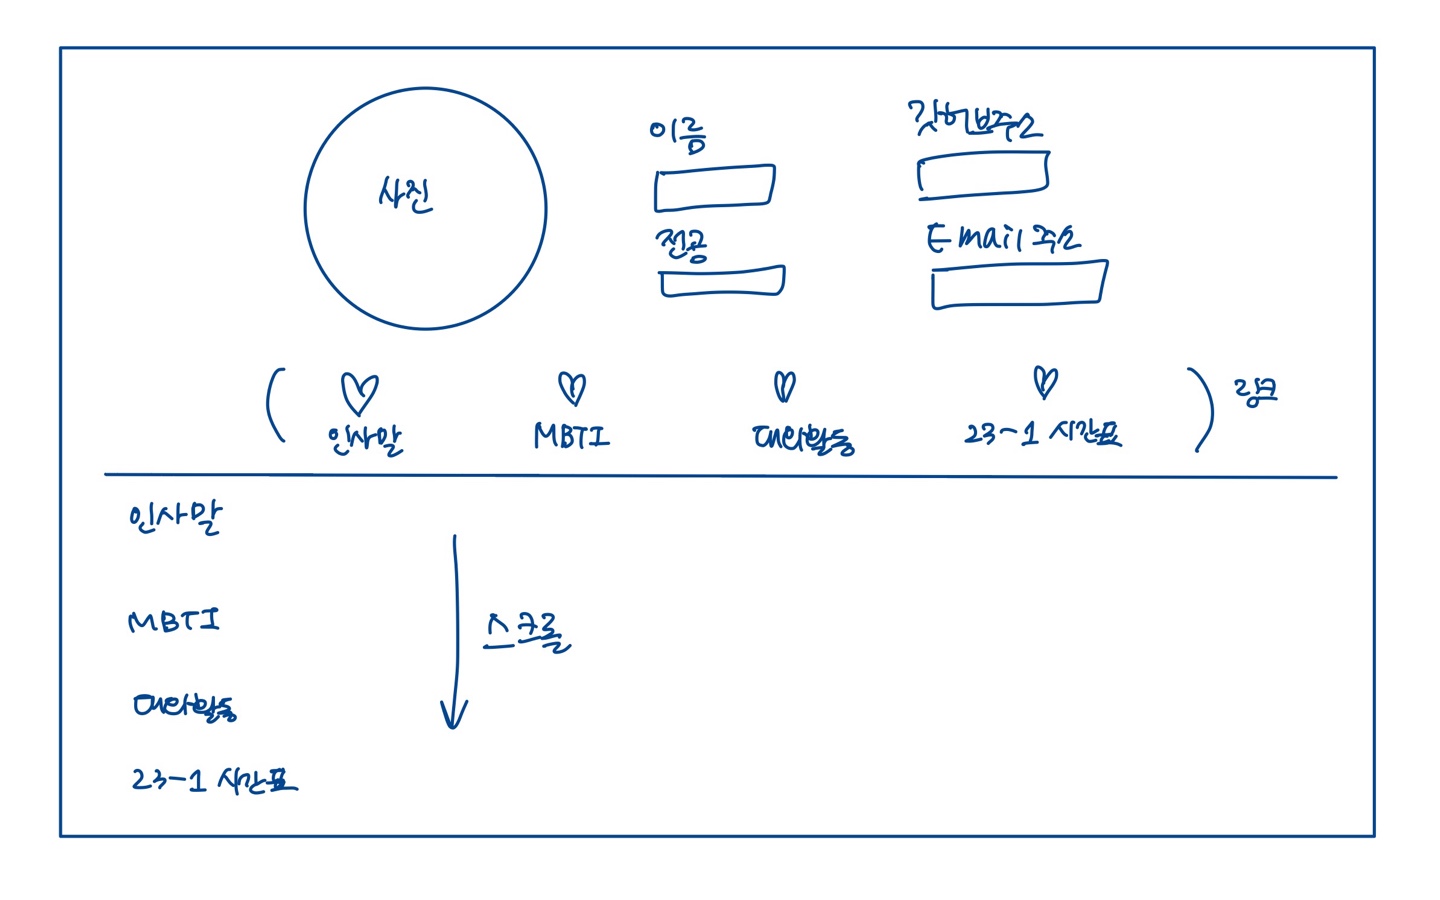 사진
이름
전공
깃허브주소
Email 주소
인사말
MBTI
대외활동
23-1 시간표
링크
인사말
MBTI
대외활동
23-1 시간표
스크롤